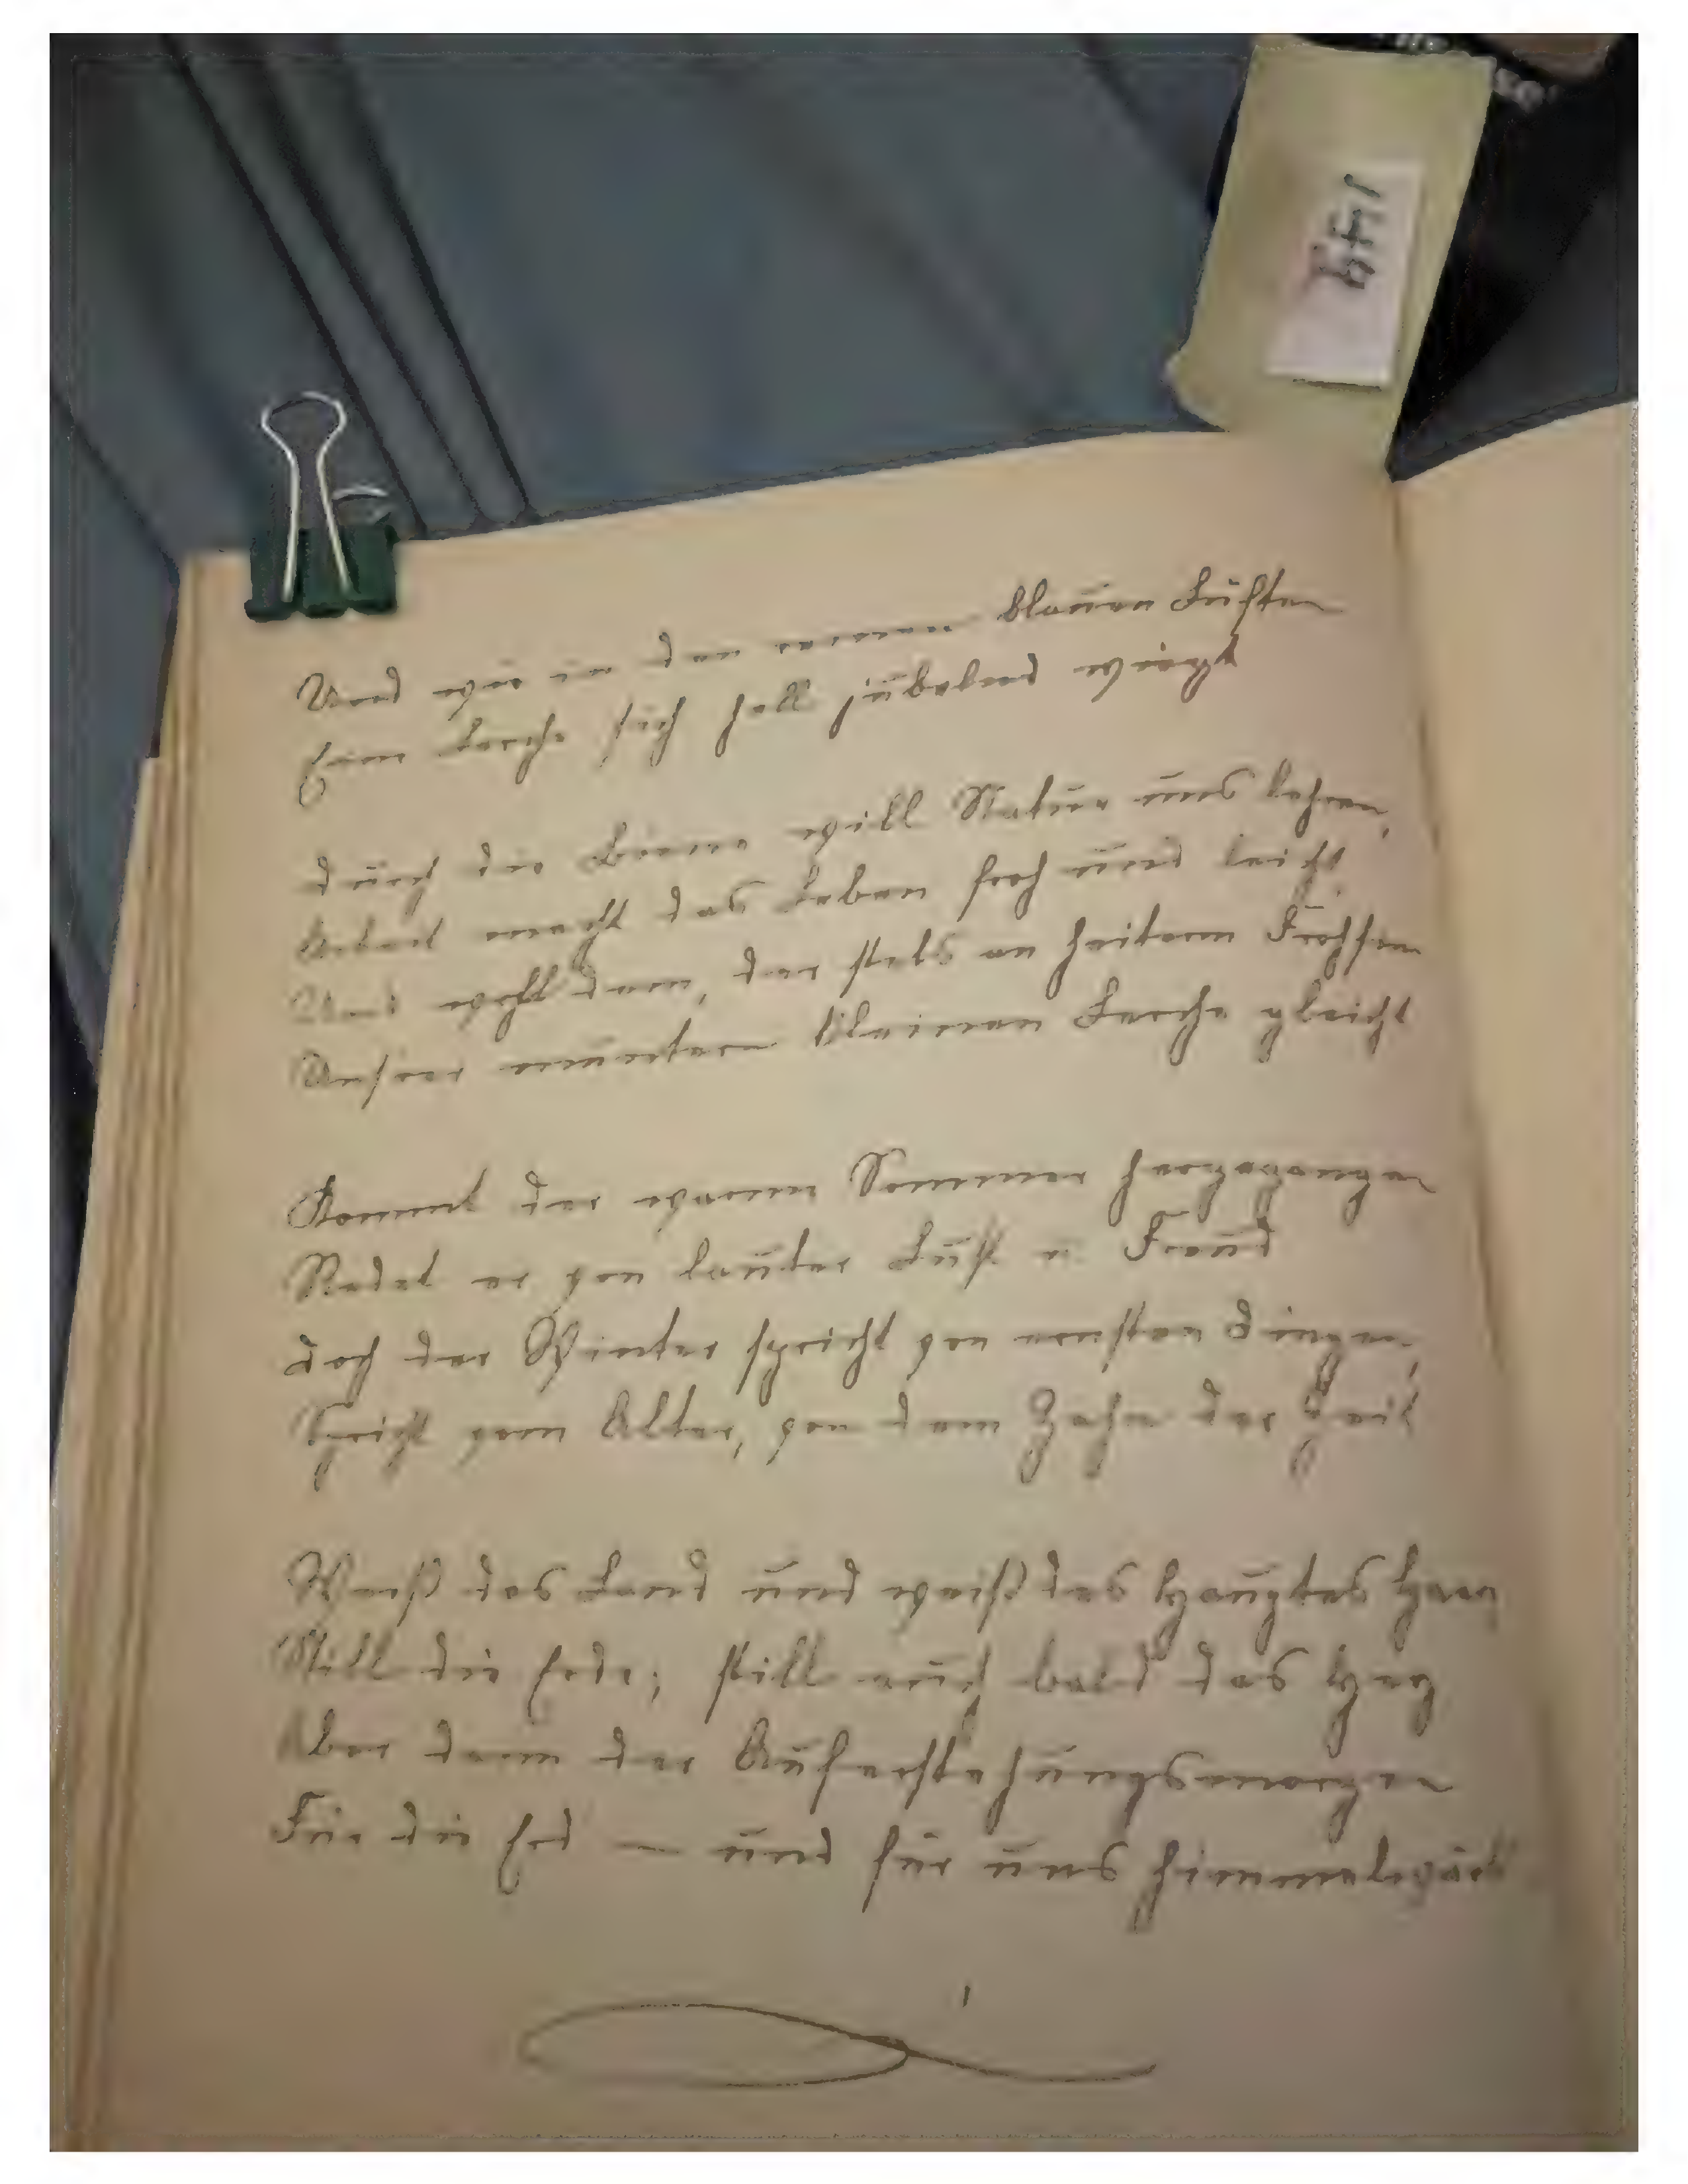 149
Und wie in den warmen blauen Lüften
Eine Lerche sich hell jubelnd wiegt
durch die Biene will Natur uns lehren,
Arbeit macht das Leben froh und leicht,
Und wohl dem, der stets an heiterm Frohsinn
Unsrer muntern kleinen Lerche gleicht
Kommt der warme Sommer hergegangen
Redet er von lauter Lust u. Freud
doch der Winter spricht von ernsten Dingen,
Spricht vom Alter, von dem Zahn der Zeit
Weiß das Land und weiß des Hauptes Haar
Still die Erde; still auch bald das Herz
Aber dann der Auferstehungsmorgen
Für die Erd — und für uns himmelwärts